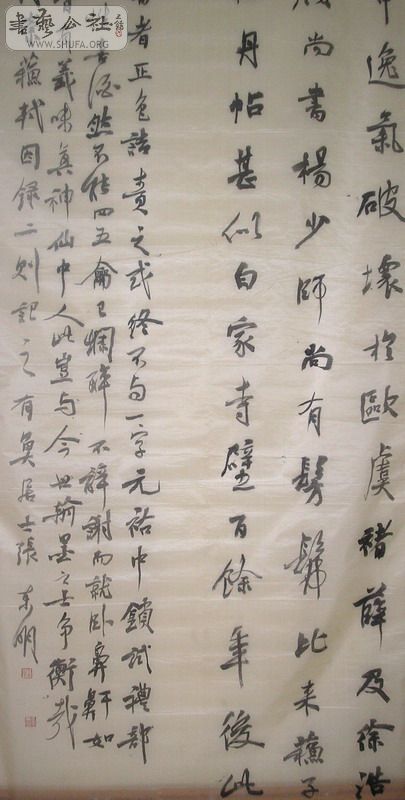 書藝公社
WWW.SHUFA.ORG
中逸氣破壞於歐虞褚薛及徐浩
尚書楊少師尚有髣髴比來蘇子
丹帖甚似白家寺壁百餘年後此
者正色詰責之或終不与一字元祐中鎖試禮部
喜酒然不能四五龠已爛醉不辭謝而就臥鼻鼾如
有義味真神仙中人此豈与今世翰墨之士爭衡哉
蘇軾因録二則記之有居士張東明